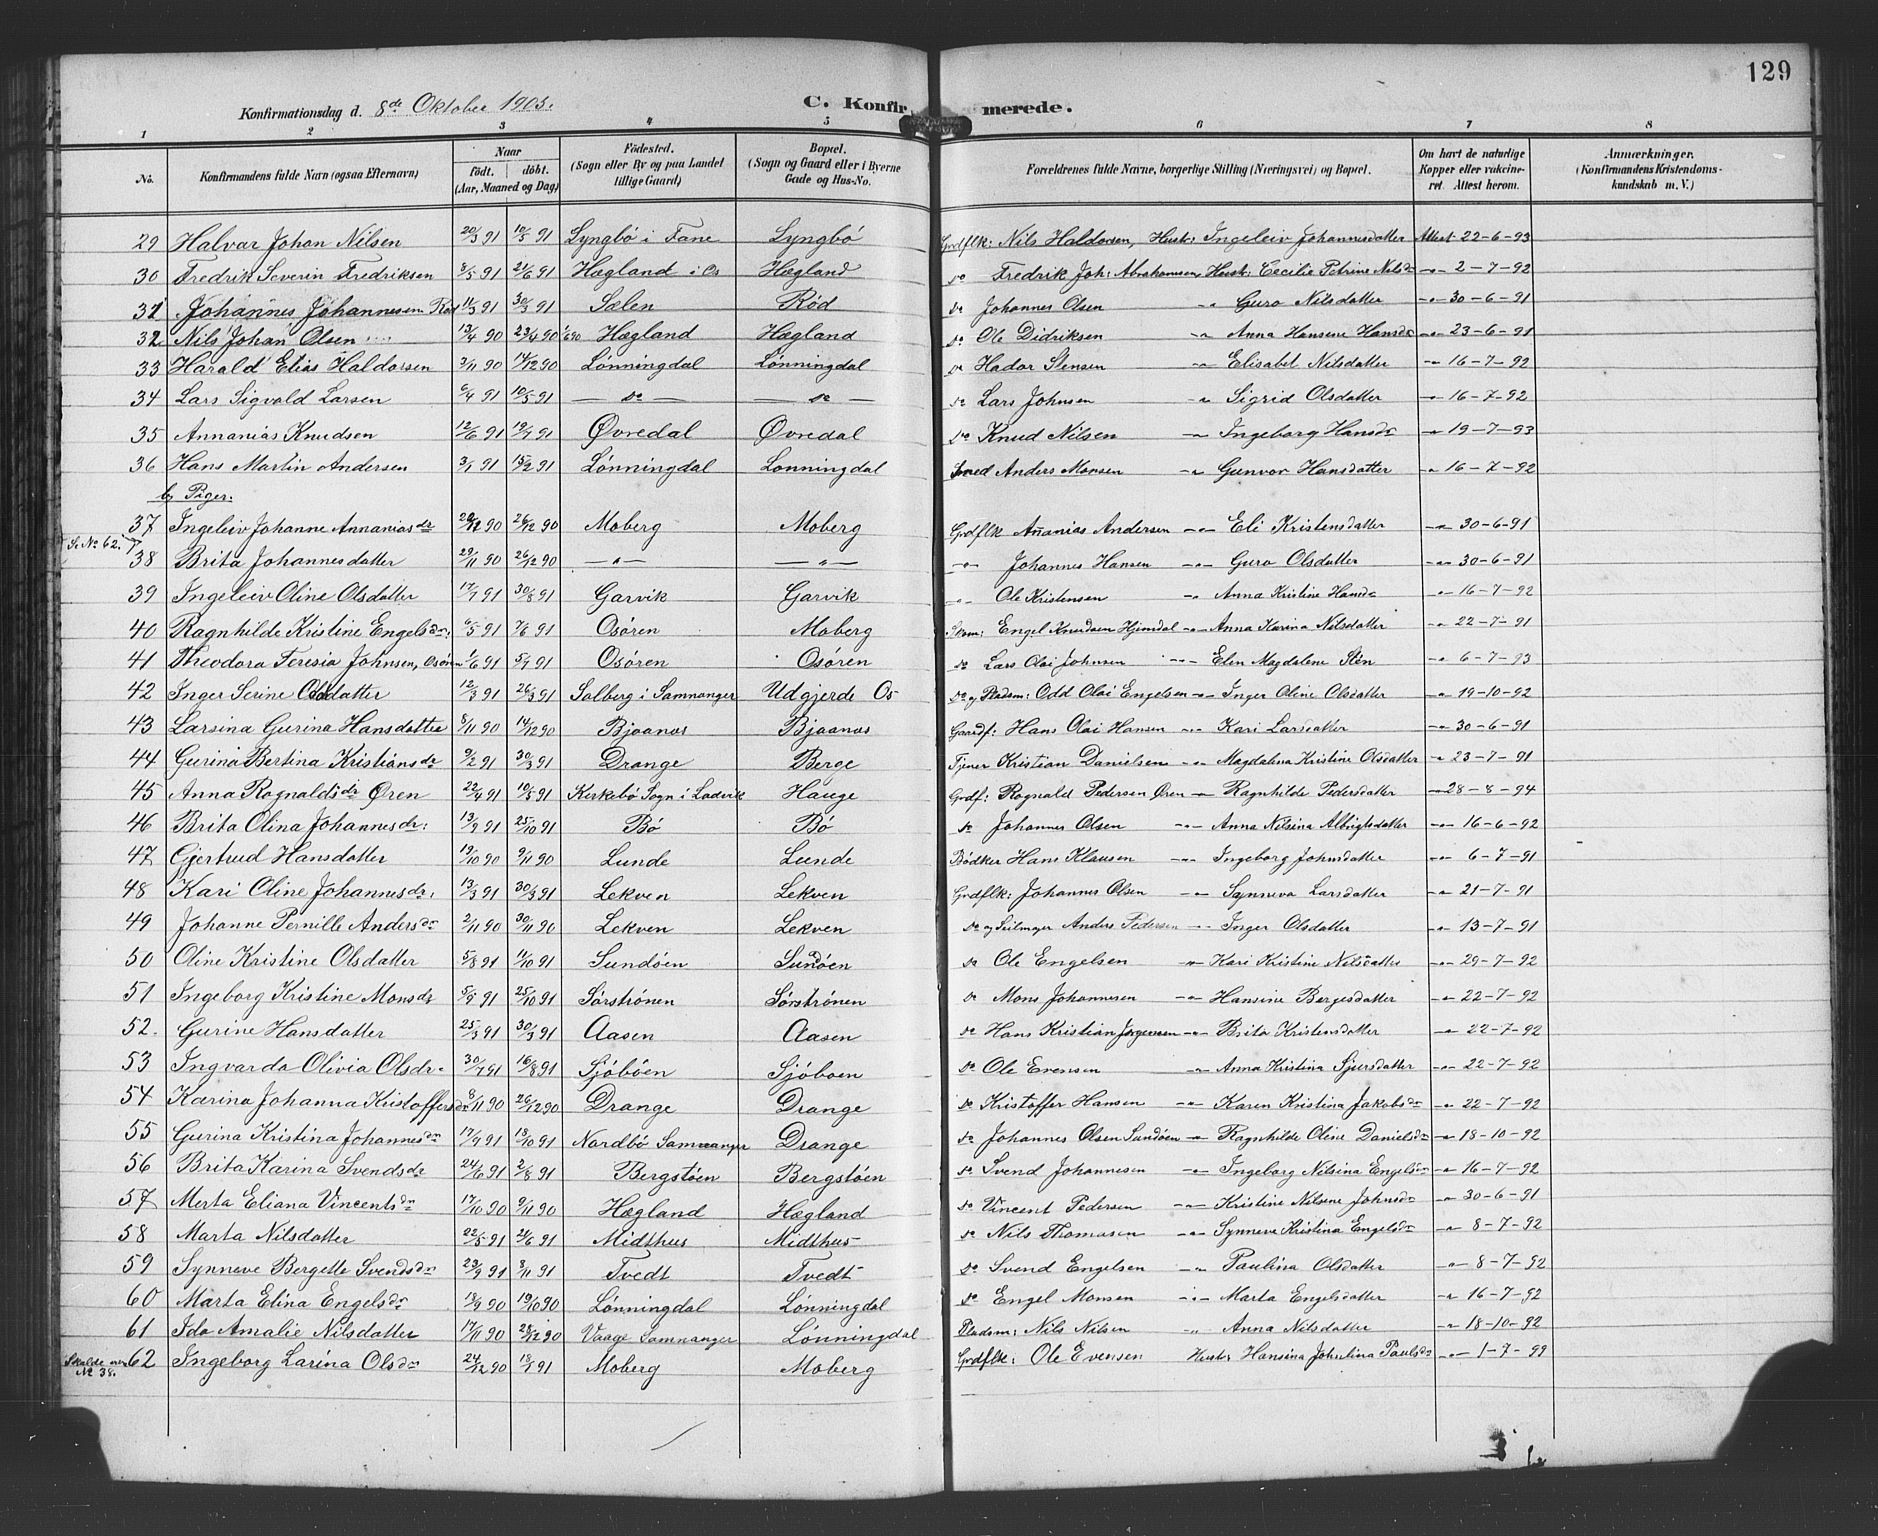 129
Konfirmationsdag d. 8de Oktober 1905. C. Konfirmerede.
1 2 3 4 5 6 7 8
No. Konfirmandens fulde Navn (ogsaa Efternavn) Naar født. døbt. (Aar, Maaned og Dag) Fødested. (Sogn eller By og paa Landet tillige Gaard) Bopæl. (Sogn og Gaard eller i Byerne Gade og Hus-No. Forældrenes fulde Navne, borgerlige Stilling (Næringsvei) og Bopæl. Om havt de naturlige Kopper eller vakcineret. Attest herom. Anmærkninger. (Konfirmandens Kristendomskundskab m. V.)
29 Halvar Johan Nilsen 20/3 91 10/5 91 Lyngbö i Fane Lyngbö Grdflk: Nils Haldorsen, Hust: Ingeleiv Johannesdatter Attest 22-6-93
30 Fredrik Severin Fredriksen 8/5 91 21/6 91 Hægland i Os Hægland do Fredrik Joh: Abrahamsen Hust: Cecilie Petrine Nilsdr -"- 2-7-92
31 Johannes Johannesen Rød 11/3 91 30/3 91 Sælen Rød do Johannes Olsen " Guro Nilsdatter -"- 30-6-91
32 Nils Johan Olsen 13/4 90 23/4 90 Hægland Hægland do Ole Didriksen -"- Anna Hansine Hansdr -"- 23-6-91
33 Harald Elias Haldorsen 3/11 90 14/12 90 Lönningdal Lönningdal do Hador Stensen -"- Elisabet Nilsdatter -"- 16-7-92
34 Lars Sigvald Larsen 6/4 91 10/5 91 — do — — do — do Lars Johnsen -"- Sigrid Olsdatter -"- 16-7-92
35 Annanias Knudsen 12/6 91 19/7 91 Øvredal Øvredal do Knud Nilsen -"- Ingeborg Hansdr -"- 19-7-93
36 Hans Martin Andersen 3/1 91 15/2 91 Lönningdal Lonningdal Smed Anders Monsen -"- Gunvor Hansdatter -"- 16-7-92
b, Piger:
37 Ingeleiv Johanne Annaniasdr 26/12 90 Moberg Moberg Grdflk Ananias Andersen -"- Eli Kristensdatter -"- 30-6-91
Se No 62.
38 Brita Johannesdatter 29/11 90 26/12 90 —"— —"— -"- Johannes Hansen -"- Guro Olsdatter -"- 30-6-91
39 Ingeleiv Oline Olsdatter 17/7 91 30/8 91 Garvik Garvik -"- Ole Kristensen -"- Anna Kristine Hansdr -"- 16-7-92
40 Ragnhilde Kristine Engelsdr: 6/5 91 7/6 91 Osören Moberg Skom: Engel Knudsen Hjemdal -"- Anna Karina Nilsdatter -"- 22-7-91
41 Theodora Teresia Johnsen, Osören 1/6 91 5/7 91 Osören Osören do Lars Olai Johnsen -"- Elen Magdalene Stén -"- 6-7-93
42 Inger Serine Olsdatter 12/3 91 26/3 91 Solberg i Samnanger Udgjerde Os do og Pladsm: Odd Olai Engelsen -"- Inger Oline Olsdatter -"- 19-10-92
43 Larsina Gurina Hansdatter 8/11 90 14/12 90 Bjaanæs Bjaanæs Gaardf: Hans Olai Hansen -"- Kari Larsdatter -"- 30-6-91
44 Gurina Bertina Kristiansdr 9/2 91 30/3 91 Drange Berge Tjener Kristian Danielsen -"- Magdalena Kristine Olsdatter -"- 23-7-91
45 Anna Ragnaldsdr Øren 22/4 91 10/5 91 Kirkebö Sogn i Ladvik Hauge Grdf: Ragnald Pedersen Øren -"- Ragnhilde Pedersdatter -"- 28-8-94
46 Brita Olina Johannesdr: 13/9 91 25/10 91 Bö Bö do Johannes Olsen -"- Anna Nilsina Albrigtsdatter -"- 16-6-92
47 Gjertrud Hansdatter 19/10 90 9/11 90 Lunde Lunde Bödker Hans Klausen -"- Ingeborg Johnsdatter -"- 6-7-91
48 Kari Oline Johannesdr: 13/3 91 30/3 91 Lekven Lekven Grdflk: Johannes Olsen -"- Synneva Larsdatter -"- 21-7-91
49 Johanne Pernille Andersdr 2/11 90 30/11 90 Lekven Lekven do og Seilmager Anders Pedersen -"- Inger Olsdatter -"- 13-7-91
50 Oline Kristine Olsdatter 5/8 91 11/10 91 Sundöen Sundöen do Ole Engelsen -"- Kari Kristine Nilsdatter -"- 29-7-92
51 Ingeborg Kristine Monsdr 5/9 91 25/10 91 Sörströnen Sörströnen do Mons Johannesen -"- Hansine Bergesdatter -"- 22-7-92
52. Gurine Hansdatter 25/3 91 30/3 91 Aasen Aasen do Hans Kristian Jørgensen -"- Brita Kristensdatter -"- 22-7-92
53 Ingvarda Olivia Olsdr. 30/7 91 16/8 91 Sjöböen Sjöboen do Ole Evensen -"- Anna Kristina Sjursdatter -"- 22-7-92
54 Karina Johanna Kristoffersdr 8/11 90 26/12 90 Drange Drange do Kristoffer Hansen -"- Karen Kristina Jakobsdr -"- 22-7-92
55 Gurina Kristina Johannesdr 17/9 91 18/10 91 Nordbö Samnanger Drange do Johannes Olsen Sundöen -"- Ragnhilde Oline Danielsdr -"- 18-10-92
56 Brita Karina Svendsdr 24/6 91 2/8 91 Bergstöen Bergstöen do Svend Johannesen -"- Ingeborg Nilsina Engelsdr -"- 16-7-92
57 Merta Eliana Vincentsdr 17/10 90 9/11 90 Hægland Hægland do Vincent Pedersen -"- Kristine Nilsine Johnsdr -"- 30-6-91
58 Marta Nilsdatter 22/5 91 21/6 91 Midthus Midthus do Nils Thomasen -"- Synneve Kristina Engelsdr -"- 8-7-92
59 Synneve Bergette Svendsdr 23/9 91 8/11 91 Tvedt Tvedt do Svend Engelsen -"- Paulina Olsdatter -"- 8-7-92
60 Marta Elina Engelsdr 13/9 90 19/10 90 Lönningdal Lönningdal do Engel Monsen -"- Marta Engelsdatter -"- 16-7-92
61 Ida Amalie Nilsdatter 17/11 90 28/12 90 Vaage Samnanger Lönningdal Pladsm: Nils Nilsen " Anna Nilsdatter -"- 18-10-92
Skulde være No 38.
62 Ingeborg Larina Olsdr 24/12 90 18/1 91 Moberg Moberg Grdflk: Ole Evensen Hust: Hansina Johulina Paulsdr -"- 1-7-99